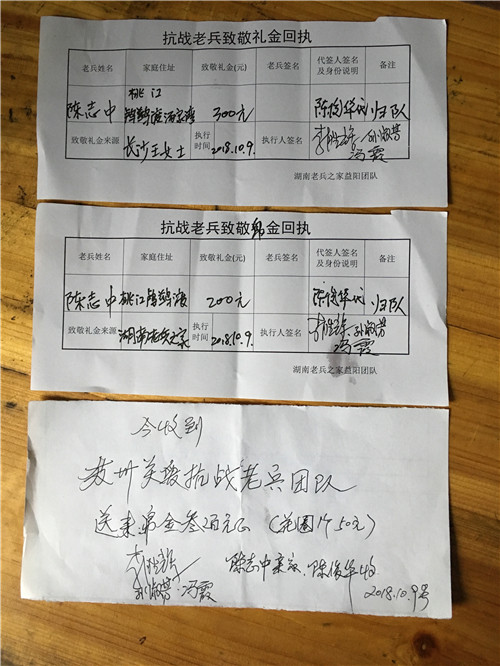 抗战老兵致敬礼金回执
老兵姓名 家庭住址 致敬礼金(元) 老兵签名 代签人签名及身份说明 备注
陈志中 桃江 300元 陈俊华代 归队
致敬礼金来源 长沙王女士 执行时间 2018.10.9. 执行人签名 冯霞
湖南老兵之家益阳团队
抗战老兵致敬帛金回执
老兵姓名 家庭住址 致敬礼金(元) 老兵签名 代签人签名及身份说明 备注
陈志中 桃江 200元 陈俊华代 归队
致敬礼金来源 湖南老兵之家 执行时间 2018.10.9. 执行人签名 冯霞
湖南老兵之家益阳团队
今收到
关爱抗战老兵团队
送来帛金叁百元正(花圈1个50元)
陈志中家家. 陈俊华收
冯霞 2018.10.9号